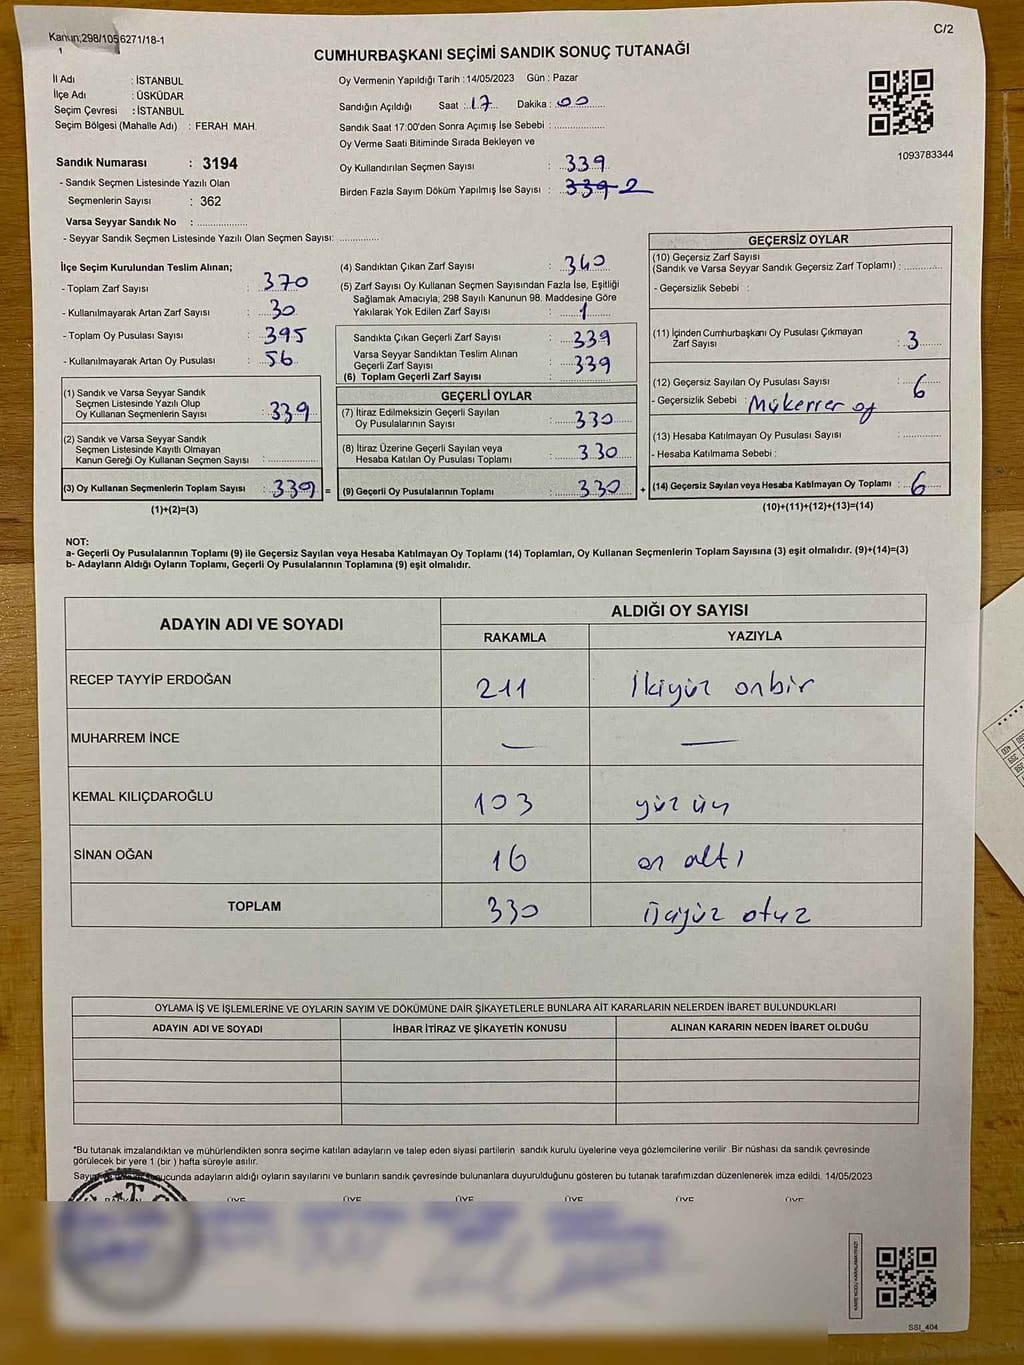 Kanun;298/1056271/18-1
1
C/2
CUMHURBAŞKANI SEÇİMİ SANDIK SONUÇ TUTANAĞI
İl Adı : İSTANBUL
İlçe Adı : ÜSKÜDAR
Seçim Çevresi : İSTANBUL
Seçim Bölgesi (Mahalle Adı) : FERAH MAH.
Sandık Numarası : 3194
- Sandık Seçmen Listesinde Yazılı Olan
Seçmenlerin Sayısı : 362
Varsa Seyyar Sandık No : ................
- Seyyar Sandık Seçmen Listesinde Yazılı Olan Seçmen Sayısı: .............
Oy Vermenin Yapıldığı Tarih : 14/05/2023 Gün : Pazar
Sandığın Açıldığı Saat : 17 Dakika : 00
Sandık Saat 17:00'den Sonra Açımış İse Sebebi : ................
Oy Verme Saati Bitiminde Sırada Bekleyen ve
Oy Kullandırılan Seçmen Sayısı : 339
Birden Fazla Sayım Döküm Yapılmış İse Sayısı : 339 2
1093783344
İlçe Seçim Kurulundan Teslim Alınan;
- Toplam Zarf Sayısı : 370
- Kullanılmayarak Artan Zarf Sayısı : 30
- Toplam Oy Pusulası Sayısı : 395
- Kullanılmayarak Artan Oy Pusulası : 56
(1) Sandık ve Varsa Seyyar Sandık
Seçmen Listesinde Yazılı Olup
Oy Kullanan Seçmenlerin Sayısı : 339
(2) Sandık ve Varsa Seyyar Sandık
Seçmen Listesinde Kayıtlı Olmayan
Kanun Gereği Oy Kullanan Seçmen Sayısı : .............
(3) Oy Kullanan Seçmenlerin Toplam Sayısı : 339 =
(1)+(2)=(3)
(4) Sandıktan Çıkan Zarf Sayısı : 340
(5) Zarf Sayısı Oy Kullanan Seçmen Sayısından Fazla İse, Eşitliği
Sağlamak Amacıyla, 298 Sayılı Kanunun 98. Maddesine Göre
Yakılarak Yok Edilen Zarf Sayısı : 1
Sandıkta Çıkan Geçerli Zarf Sayısı : 339
Varsa Seyyar Sandıktan Teslim Alınan
Geçerli Zarf Sayısı : 339
(6) Toplam Geçerli Zarf Sayısı : .............
GEÇERLİ OYLAR
(7) İtiraz Edilmeksizin Geçerli Sayılan
Oy Pusulalarının Sayısı : 330
(8) İtiraz Üzerine Geçerli Sayılan veya
Hesaba Katılan Oy Pusulası Toplamı : 330
(9) Geçerli Oy Pusulalarının Toplamı : 330 +
GEÇERSİZ OYLAR
(10) Geçersiz Zarf Sayısı
(Sandık ve Varsa Seyyar Sandık Geçersiz Zarf Toplamı) : ............
- Geçersizlik Sebebi :
(11) İçinden Cumhurbaşkanı Oy Pusulası Çıkmayan
Zarf Sayısı : 3
(12) Geçersiz Sayılan Oy Pusulası Sayısı : 6
- Geçersizlik Sebebi : Mükerrer oy
(13) Hesaba Katılmayan Oy Pusulası Sayısı : ............
- Hesaba Katılmama Sebebi :
(14) Geçersiz Sayılan veya Hesaba Katılmayan Oy Toplamı : 6
(10)+(11)+(12)+(13)=(14)
NOT:
a- Geçerli Oy Pusulalarının Toplamı (9) ile Geçersiz Sayılan veya Hesaba Katılmayan Oy Toplamı (14) Toplamları, Oy Kullanan Seçmenlerin Toplam Sayısına (3) eşit olmalıdır. (9)+(14)=(3)
b- Adayların Aldığı Oyların Toplamı, Geçerli Oy Pusulalarının Toplamına (9) eşit olmalıdır.
ADAYIN ADI VE SOYADI
ALDIĞI OY SAYISI
RAKAMLA YAZIYLA
RECEP TAYYİP ERDOĞAN 211 İkiyüz onbir
MUHARREM İNCE — —
KEMAL KILIÇDAROĞLU 103 yüz üç
SİNAN OĞAN 16 on altı
TOPLAM 330 Üçyüz otuz
OYLAMA İŞ VE İŞLEMLERİNE VE OYLARIN SAYIM VE DÖKÜMÜNE DAİR ŞİKAYETLERLE BUNLARA AİT KARARLARIN NELERDEN İBARET BULUNDUKLARI
ADAYIN ADI VE SOYADI İHBAR İTİRAZ VE ŞİKAYETİN KONUSU ALINAN KARARIN NEDEN İBARET OLDUĞU
*Bu tutanak imzalandıktan ve mühürlendikten sonra seçime katılan adayların ve talep eden siyasi partilerin sandık kurulu üyelerine veya gözlemcilerine verilir. Bir nüshası da sandık çevresinde
görülecek bir yere 1 (bir ) hafta süreyle asılır.
cunda adayların aldığı oyların sayılarını ve bunların sandık çevresinde bulunanlara duyurulduğunu gösteren bu tutanak tarafımızdan düzenlenerek imza edildi. 14/05/2023
ÜYE ÜYE ÜYE ÜYE ÜYE ÜYE
SSI_404